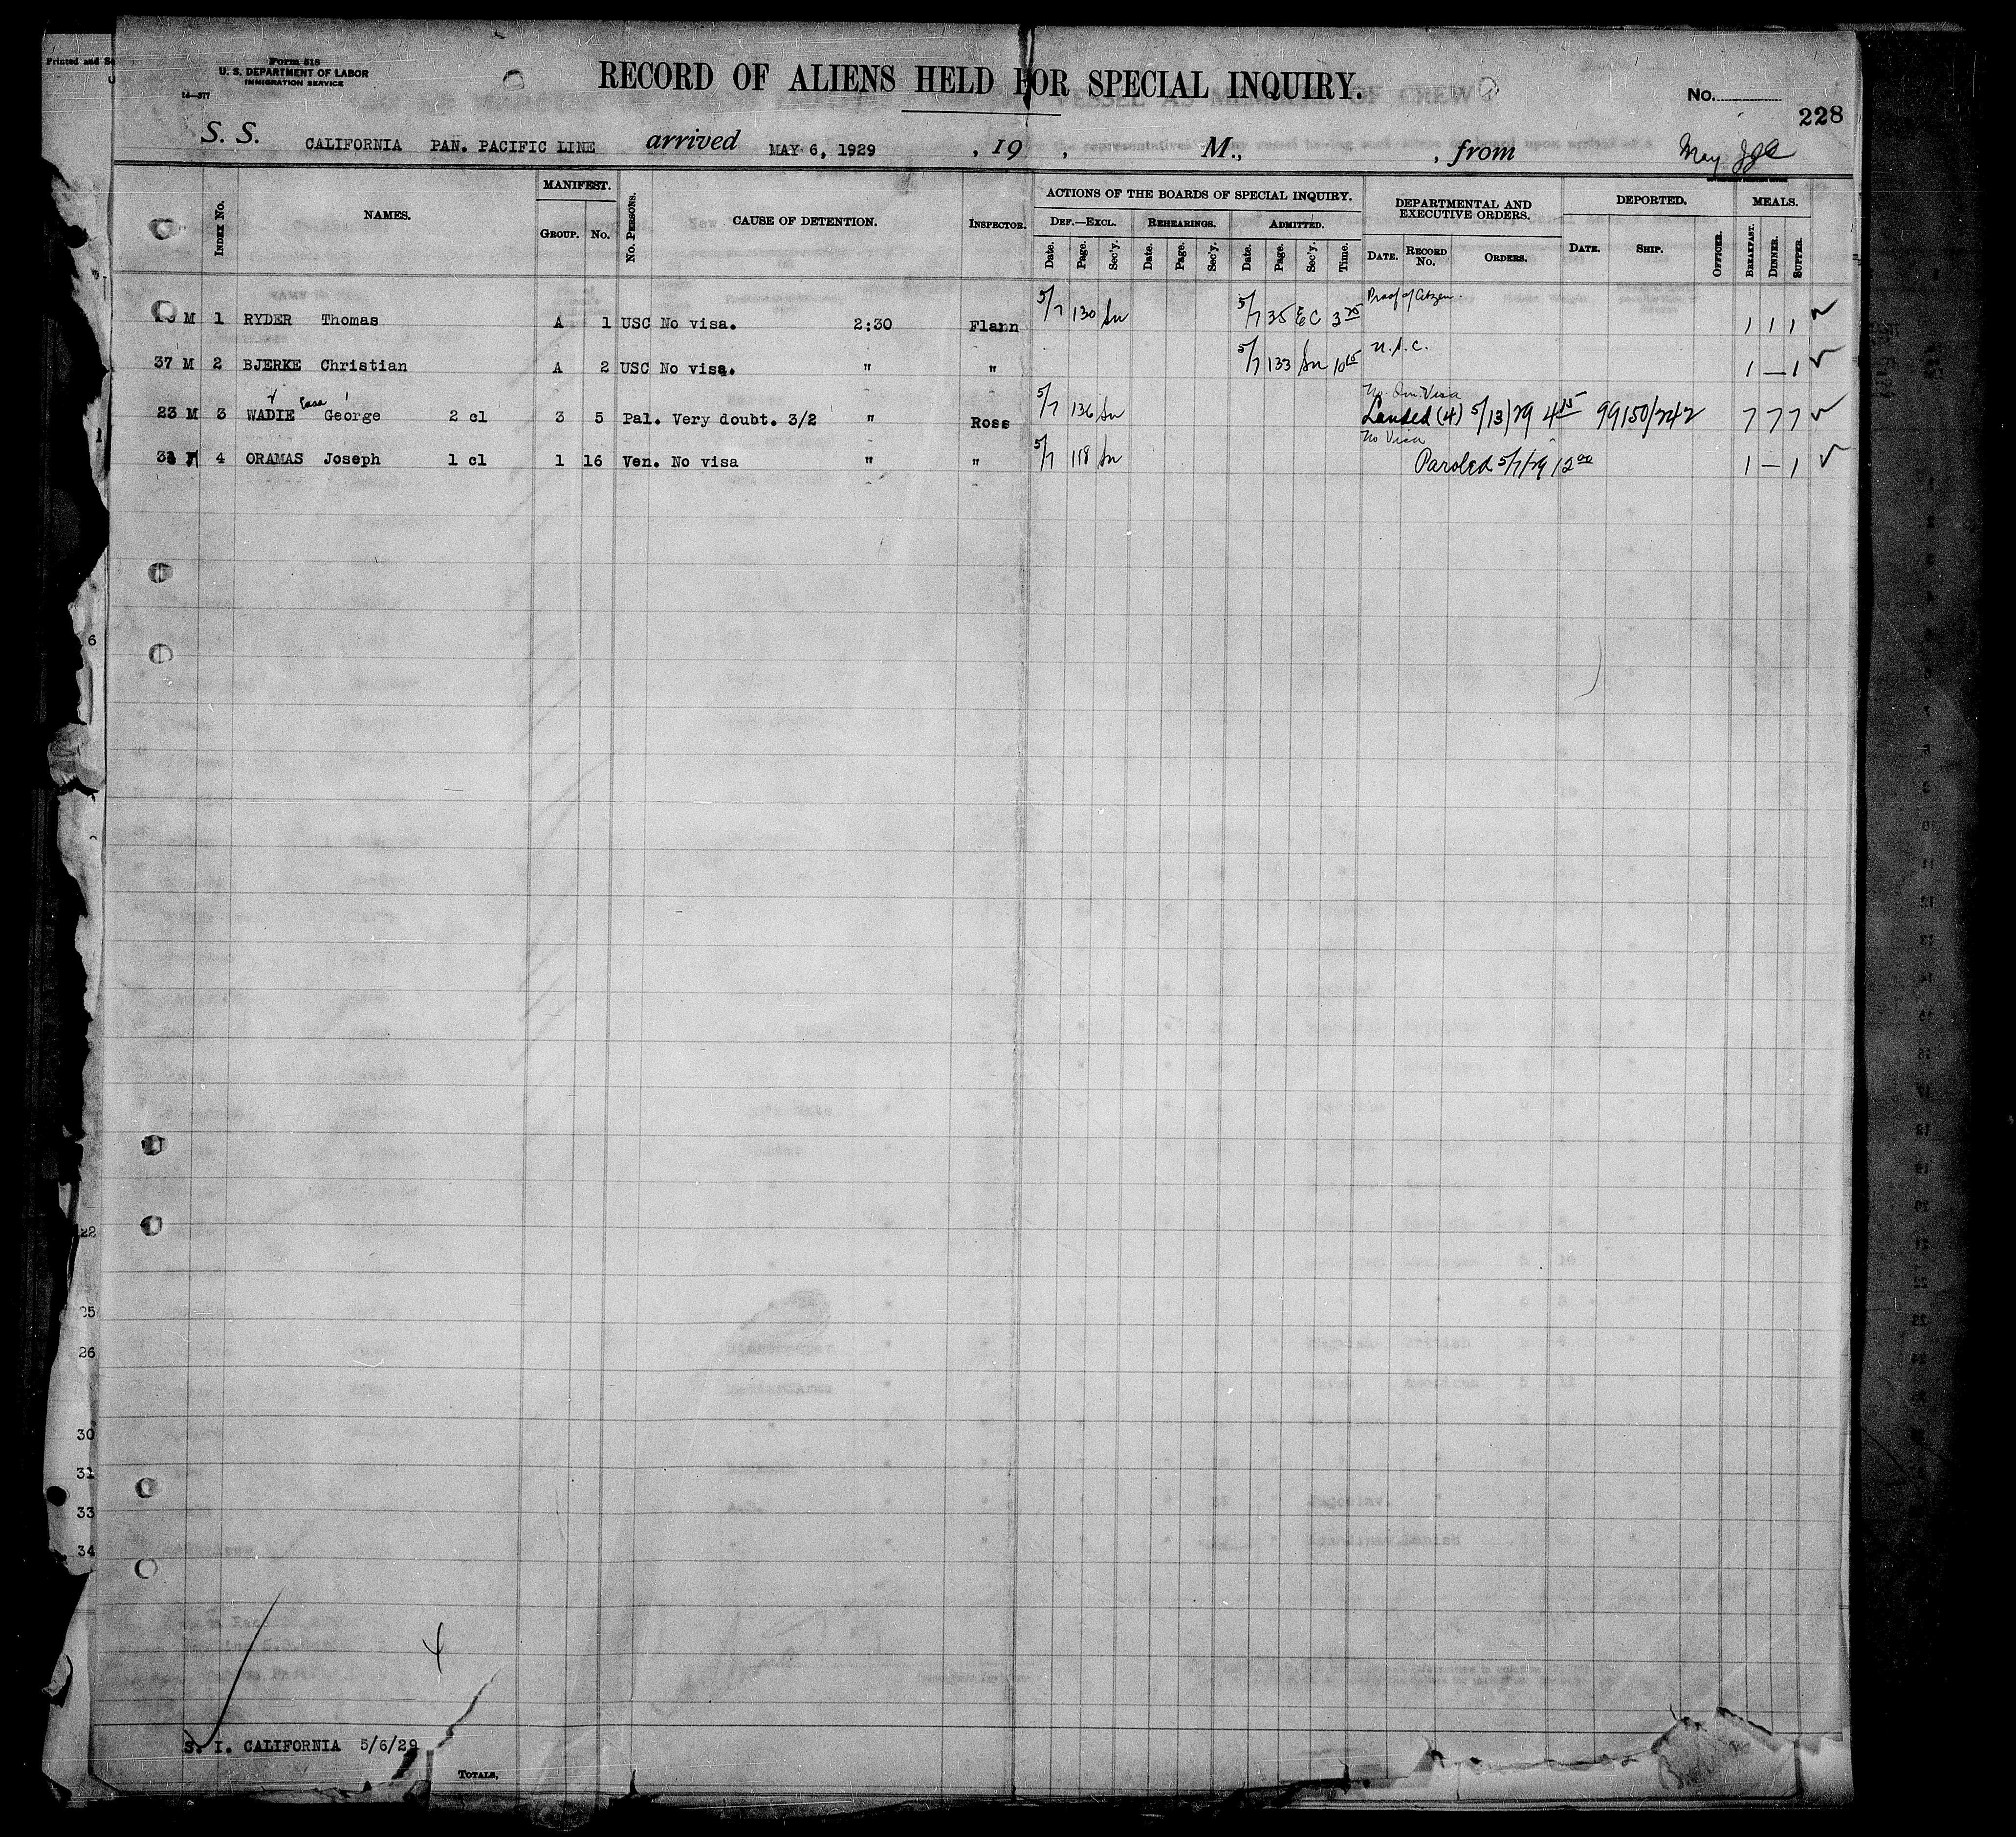 Printed and Se
Form 518
U. S. DEPARTMENT OF LABOR
IMMIGRATION SERVICE
14—377
RECORD OF ALIENS HELD FOR SPECIAL INQUIRY.
No.
228
S. S. CALIFORNIA PAN. PACIFIC LINE arrived MAY 6, 1929 , 19 , M., , from May
INDEX No. NAMES. MANIFEST. GROUP. No. No. PERSONS. CAUSE OF DETENTION. INSPECTOR.
ACTIONS OF THE BOARDS OF SPECIAL INQUIRY. DEPARTMENTAL AND EXECUTIVE ORDERS. DEPORTED. MEALS.
DEF.—EXCL. REHEARINGS. ADMITTED.
Date. Page. Sec'y. Date. Page. Sec'y. Date. Page. Sec'y. Time. DATE. RECORD No. ORDERS. DATE. SHIP. OFFICER. BREAKFAST. DINNER. SUPPER.
Proof of Citizen.
M 1 RYDER Thomas A 1 USC No visa. 2:30 Flann 5/7 130 Sn 5/7 35 EC 3 25 1 1 1
U.S.C.
37 M 2 BJERKE Christian A 2 USC No visa. " " 5/7 133 Sn 10 15 1 — 1
No Im. Visa
23 M 3 WADIE Easa George 2 cl 3 5 Pal. Very doubt. 3/2 " Ross 5/7 136 Sn Landed (4) 5/13/29 4 15 99150/242 7 7 7
No Visa
4 ORAMAS Joseph 1 cl 1 16 Ven. No visa " " 5/7 118 Sn Paroled 5/7/29 12 00 1 — 1
6
22
25
26
30
31
33
34
4
S. I. CALIFORNIA 5/6/29
TOTALS.